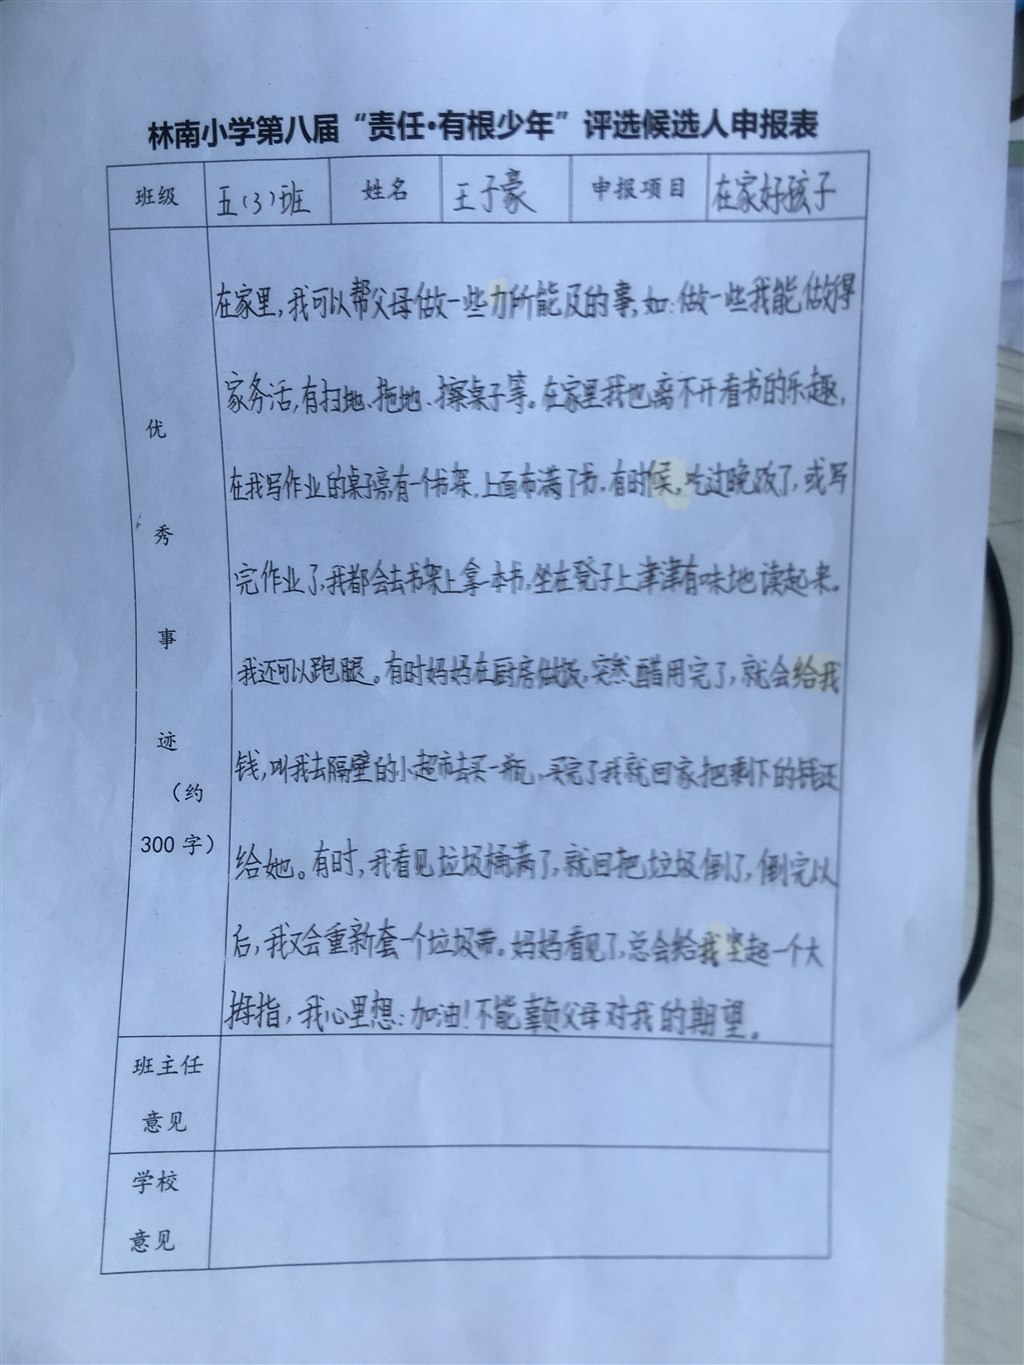 林南小学第八届“责任·有根少年”评选候选人申报表
班级 五(3)班 姓名 王子豪 申报项目 在家好孩子
优秀事迹（约300字）
在家里，我可以帮父母做一些力所能及的事，如：做一些我能做得
家务活，有扫地、拖地、擦桌子等。在家里我也离不开看书的乐趣，
在我写作业的桌子旁有一个书架，上面布满了书，有时候，吃过晚饭了，或写
完作业了，我都会去书架上拿一本书，坐在凳子上津津有味地读起来。
我还可以跑腿。有时妈妈在厨房做饭，突然醋用完了，就会给我
钱，叫我去隔壁的小超市去买一瓶，买完了我就回家把剩下的钱还
给她。有时，我看见垃圾桶满了，就回把垃圾倒了，倒完以
后，我又会重新套一个垃圾带。妈妈看见了，总会给我坚起一个大
拇指，我心里想：加油！不能辜负父母对我的期望。
班主任
意见
学校
意见